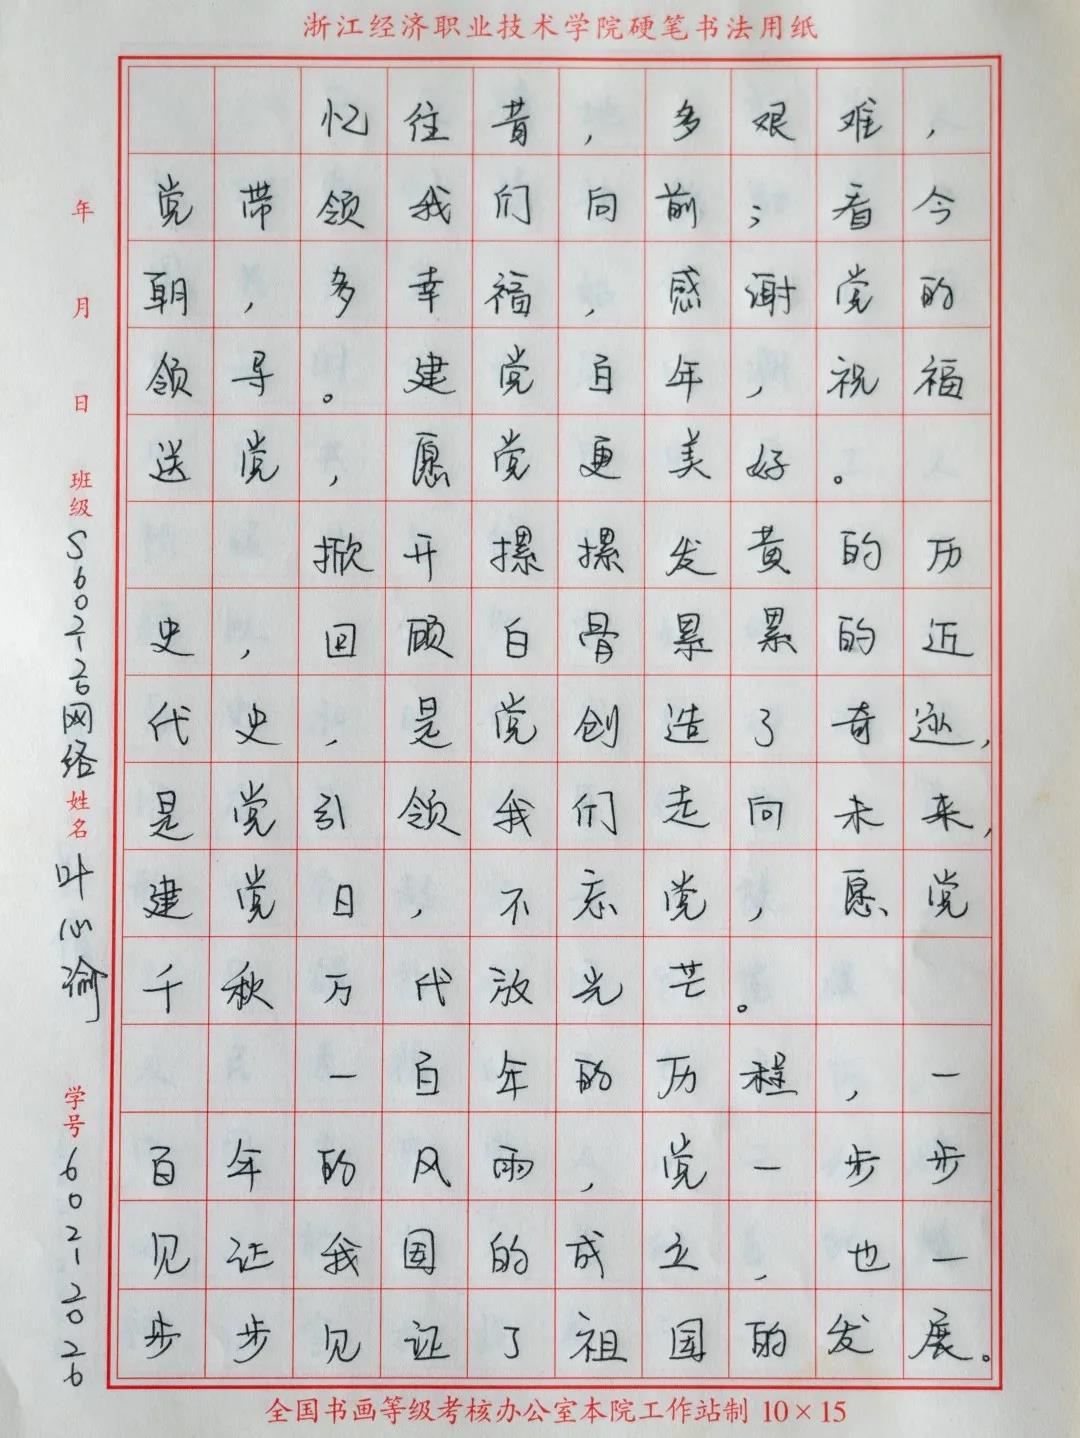 浙江经济职业技术学院硬笔书法用纸
忆往昔，多艰难，
党带领我们向前；看今
朝，多幸福，感谢党的
领导。建党百年，祝福
送党，愿党更美好。
掀开摞摞发黄的历
史，回顾白骨累累的近
代史，是党创造了奇迹，
是党引领我们走向未来，
建党日，不忘党，愿党
千秋万代放光芒。
一百年的历程，一
百年的风雨，党一步步
见证我国的成立，也一
步步见证了祖国的发展。
年 月 日 班级 网络 姓名 叶心谕 学号 6021-2026
全国书画等级考核办公室本院工作站制 10×15